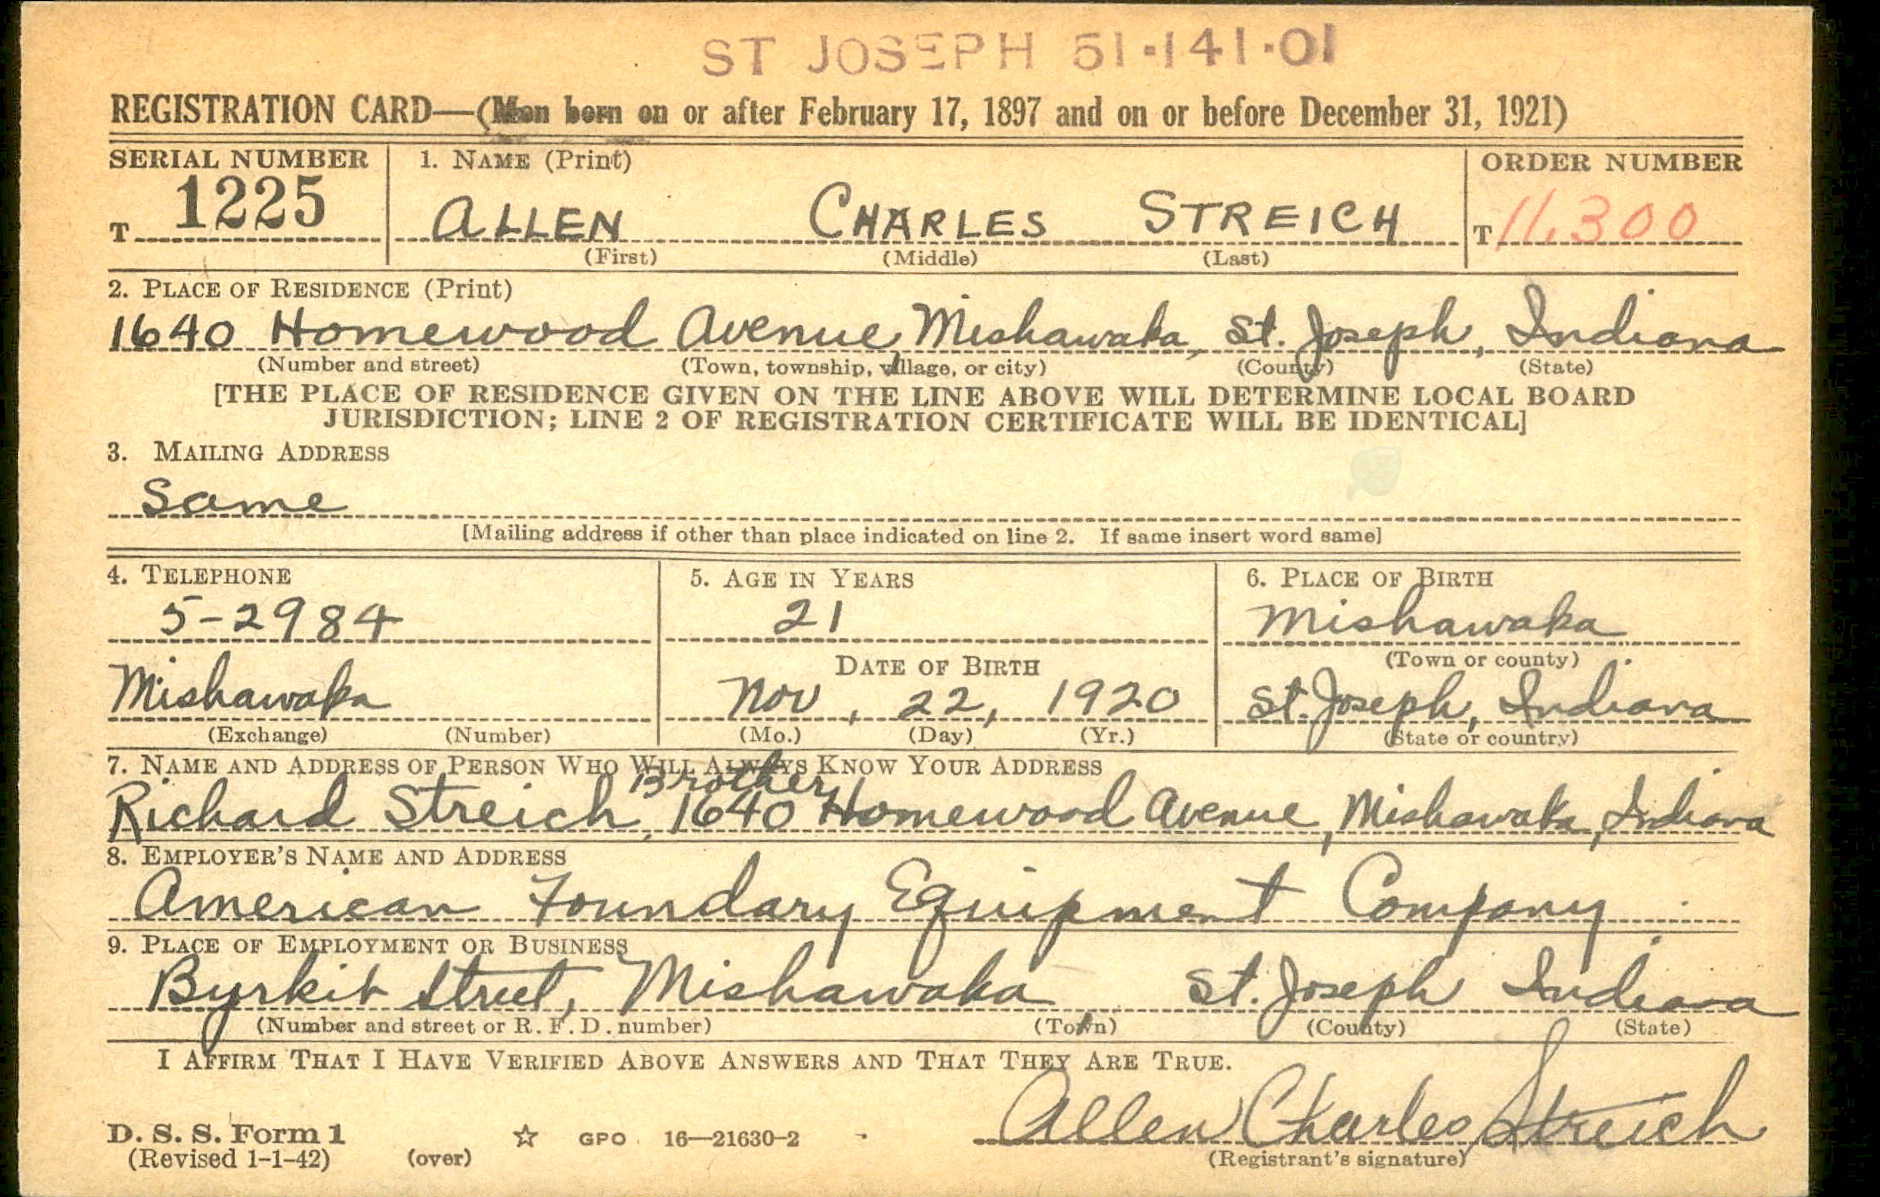 ST JOSEPH 51·141·01
REGISTRATION CARD—(Men born on or after February 17, 1897 and on or before December 31, 1921)
SERIAL NUMBER 1. NAME (Print) ORDER NUMBER
T 1225 ALLEN CHARLES STREICH T 11,300
(First) (Middle) (Last)
2. PLACE OF RESIDENCE (Print)
1640 Homewood Avenue, Mishawaka, St. Joseph, Indiana
(Number and street) (Town, township, village, or city) (County) (State)
[THE PLACE OF RESIDENCE GIVEN ON THE LINE ABOVE WILL DETERMINE LOCAL BOARD
JURISDICTION; LINE 2 OF REGISTRATION CERTIFICATE WILL BE IDENTICAL]
3. MAILING ADDRESS
Same
[Mailing address if other than place indicated on line 2. If same insert word same]
4. TELEPHONE 5. AGE IN YEARS 6. PLACE OF BIRTH
5-2984 21 Mishawaka
DATE OF BIRTH (Town or county)
Mishawaka Nov, 22, 1920 St. Joseph, Indiana
(Exchange) (Number) (Mo.) (Day) (Yr.) (State or country)
7. NAME AND ADDRESS OF PERSON WHO WILL ALWAYS KNOW YOUR ADDRESS
Brother
Richard Streich, 1640 Homewood Avenue, Mishawaka, Indiana
8. EMPLOYER'S NAME AND ADDRESS
American Foundary Equipment Company
9. PLACE OF EMPLOYMENT OR BUSINESS
Byrkit Street, Mishawaka St. Joseph Indiana
(Number and street or R. F. D. number) (Town) (County) (State)
I AFFIRM THAT I HAVE VERIFIED ABOVE ANSWERS AND THAT THEY ARE TRUE.
Allen Charles Streich
D. S. S. Form 1 GPO 16—21630-2
(Revised 1-1-42) (over) (Registrant's signature)